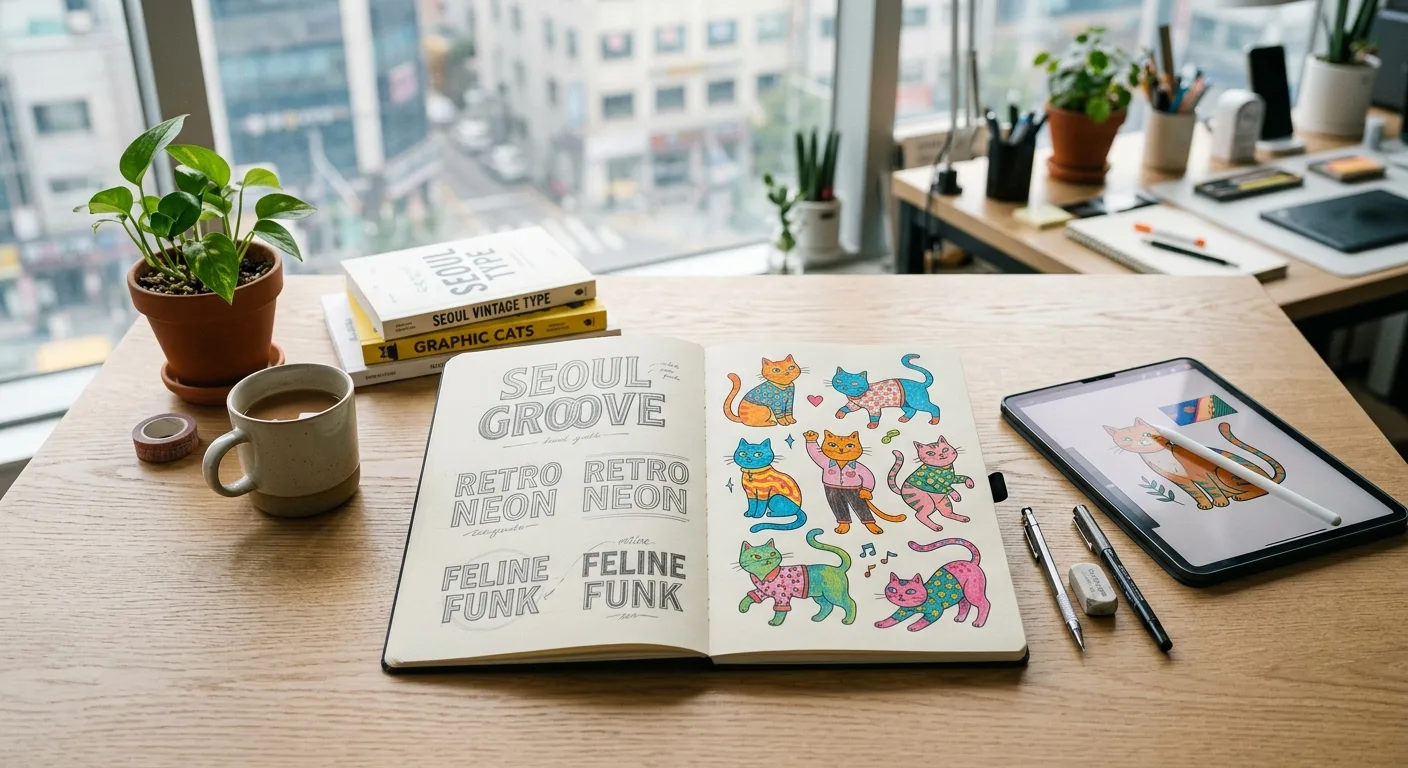 SEOUL
TYPE
SEOUL VINTAGE TYPE
GRAPHIC CATS
SEOUL
GROOVE
RETRO
NEON
RETRO
NEON
FELINE
FUNK
FELINE
FUNK